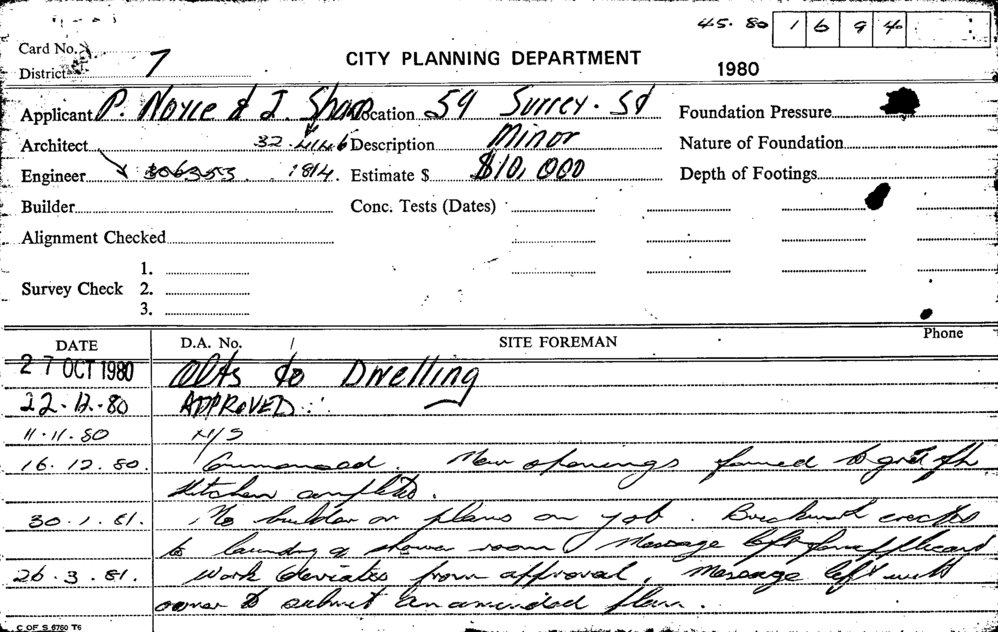 45. 80 1 6 9 4
Card No.
District 7
CITY PLANNING DEPARTMENT
1980
Applicant P. Noyce & J. Sharp Location 59 Surrey. St Foundation Pressure
Architect 32. 4446 Description Minor Nature of Foundation
Engineer 306353 1814. Estimate $ $10,000 Depth of Footings
Builder Conc. Tests (Dates)
Alignment Checked
1.
Survey Check 2.
3.
Phone
DATE D.A. No. SITE FOREMAN
27 OCT 1980 Alts to Dwelling
22.12.80 APPROVED
11.11.80 N/S
16.12.80. Commenced. New openings formed to
Kitchen completed.
30.1.81. No builder or plans on job. Brickwork erected
to laundry & shower room Message left for applicant
26.3.81. Work deviates from approval. Message left with
owner to submit an amended plan.
C OF S 6760 T6